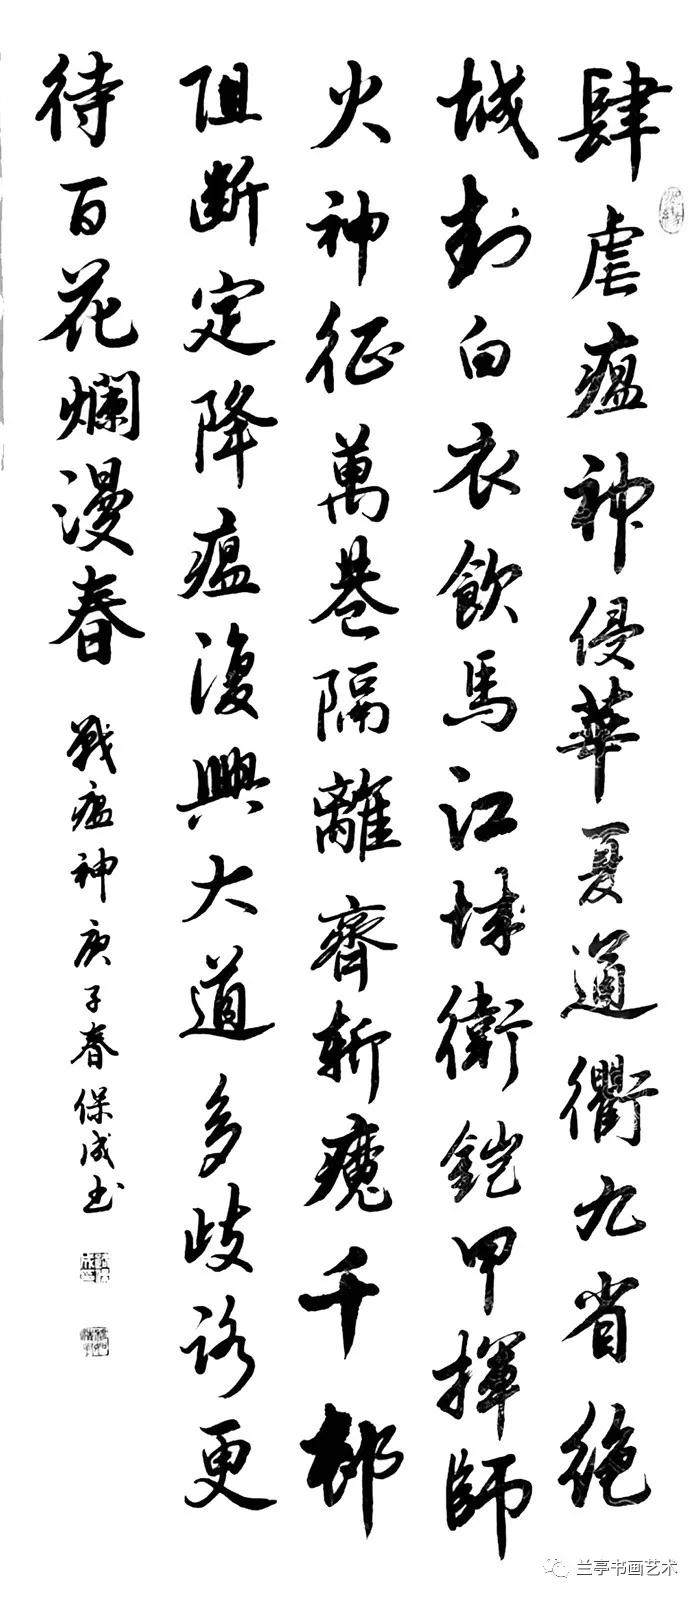 肆虐瘟神侵華夏通衢九省絶
城封白衣飲馬江城衛鎧甲揮師
火神征萬巷隔離齊斬魔千邨
阻断定降瘟復興大道多歧路更
待百花爛漫春
戰瘟神庚子春保成书
兰亭书画艺术